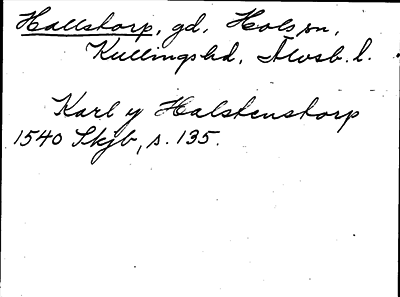 Hallstorp, gd, Hols sn,
Kullings hd, Älvsb. l.
Karl y Halstenstorp
1540 Skjb, s. 135.